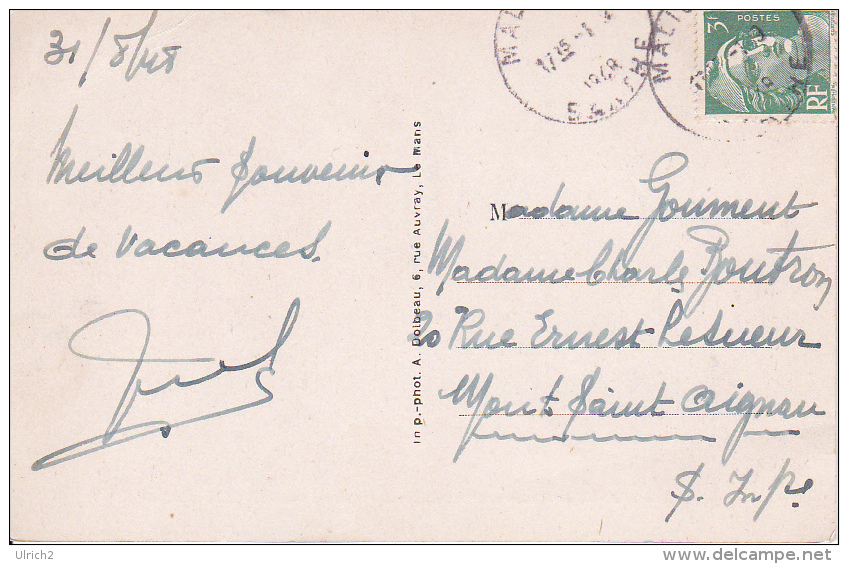 31/8/48
Meilleurs Souvenirs
de Vacances.
Imp.-phot. A. Dolbeau, 6, rue Auvray, Le Mans
MAL
17 35 -1 -
1948
SARTHE
3F
POSTES
RF
Madame Goument
Madame Charles Boutron
20 Rue Ernest Lesueur
Mont Saint Aignan
S. Infre
Ulrich2
www.delcampe.net